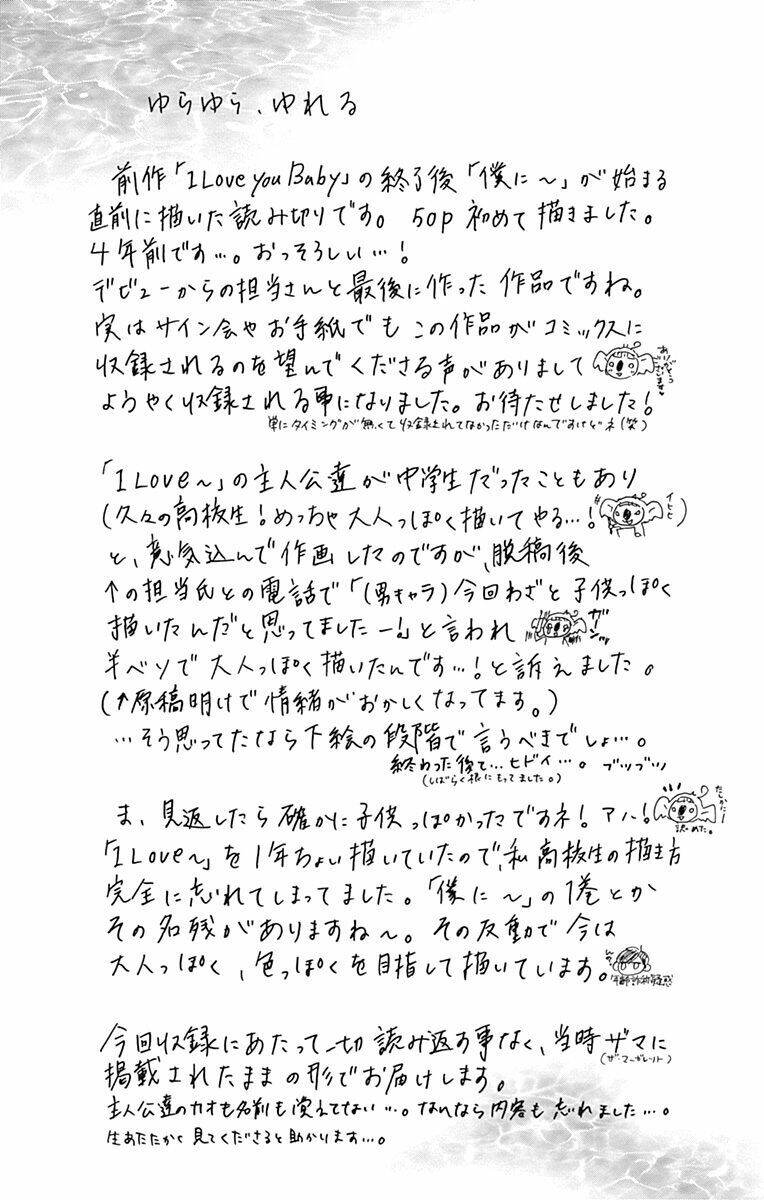 ゆらゆら、ゆれる
前作「I Love you Baby」の終了後「僕に～」が始まる
直前に描いた読み切りです。50p 初めて描きました。
4年前です…。おっそろしい…!
デビューからの担当さんと最後に作った作品ですね。
実はサイン会やお手紙でもこの作品がコミックスに
収録されるのを望んでくださる声がありまして
ありがとうございます
ようやく収録される事になりました。お待たせしました!
単にタイミングが無くて収録されてなかっただけなんですけどネ(笑)
「I Love～」の主人公達が中学生だったこともあり
(久々の高校生!めっちゃ大人っぽく描いてやる…!
イヒヒ)
と、意気込んで作画したのですが、脱稿後
↑の担当氏との電話で「(男キャラ)今回わざと子供っぽく
描いたんだと思ってましたー!」と言われ
ガーン
半ベソで大人っぽく描いたんです…!と訴えました。
(↑原稿明けで情緒がおかしくなってます。)
…そう思ってたなら下絵の段階で言うべきでしょ…。
終わった後で…ヒドイ…。ブツブツ
(しばらく根にもってました。)
ま、見返したら確かに子供っぽかったですネ!アハ!
たしかにー
認めた。
「I Love～」を1年ちょい描いていたので、私高校生の描き方
完全に忘れてしまってました。「僕に～」の1巻とか
その名残がありますね～。その反動で今は
大人っぽく、色っぽくを目指して描いています。
年齢詐称疑惑
今回収録にあたって一切読み返す事なく、当時ザマに
(ザ・マーガレット)
掲載されたままの形でお届けします。
主人公達のカオも名前も覚えてない…。なんなら内容も忘れました…。
生あたたかく見てくださると助かります…。